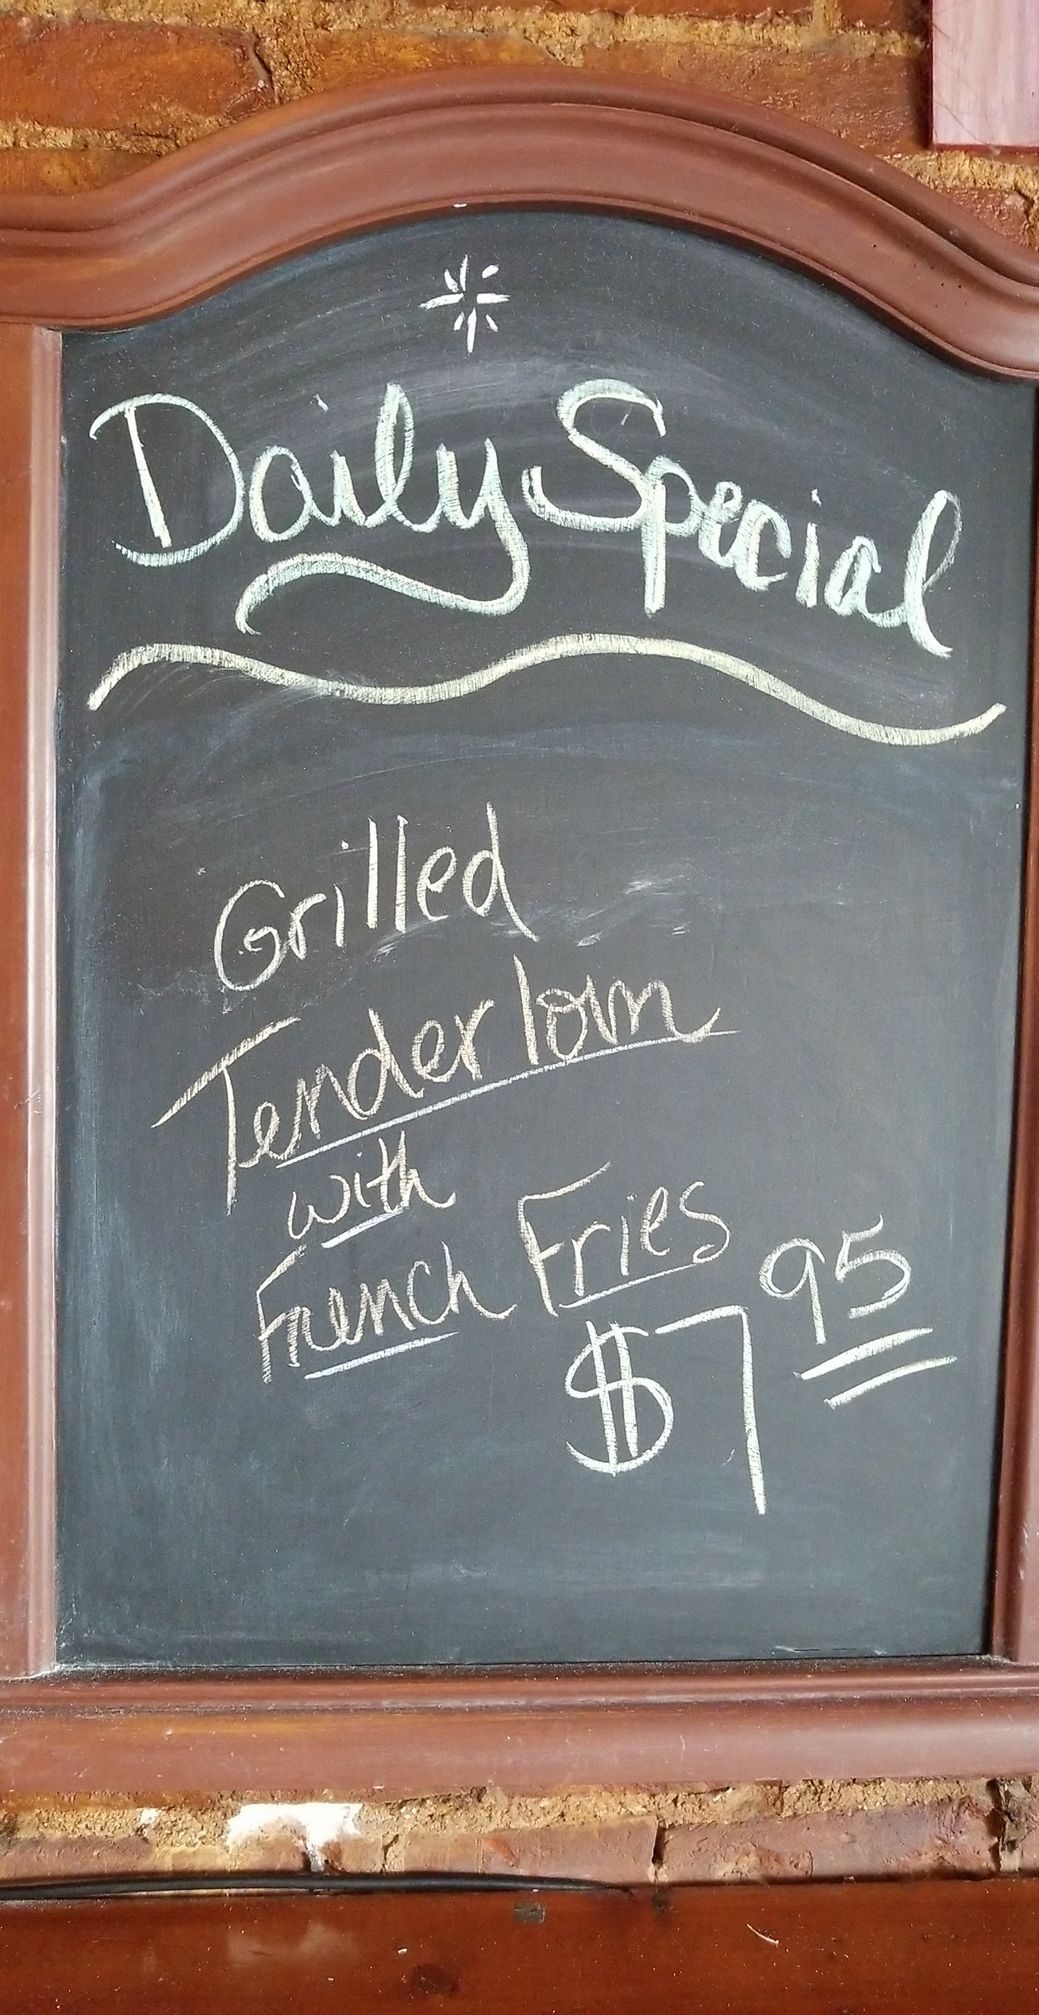 Daily Special
Grilled
Tender loin
with
French Fries
$7 95